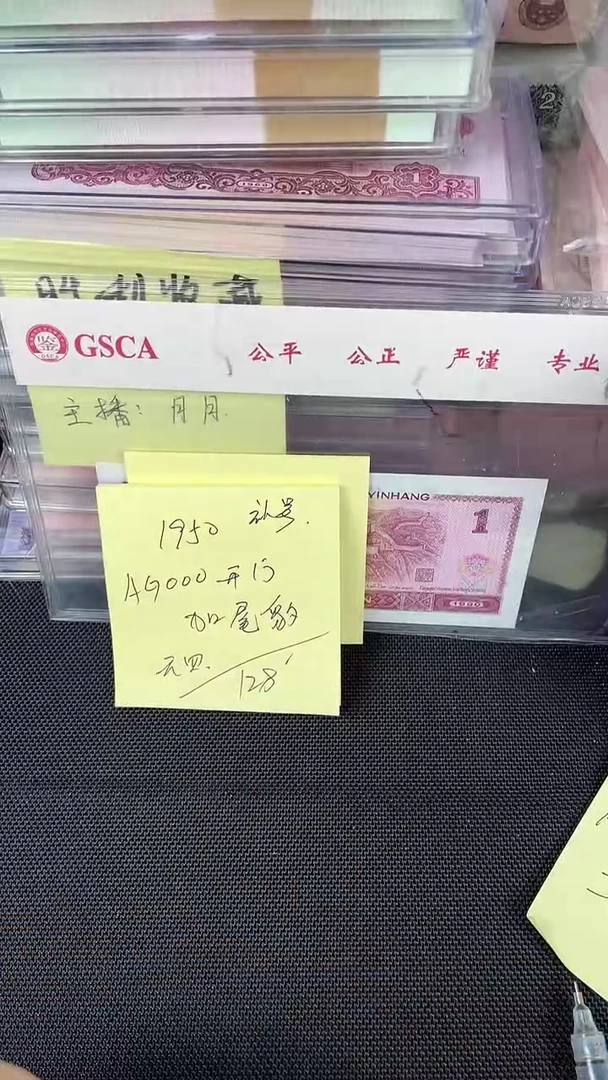 2
1
1960
GSCA 公平 公正 严谨 专业
主播：月月.
YINHANG
1
1990
1950 补号.
AG000 开门
加尾豹
元四. 128